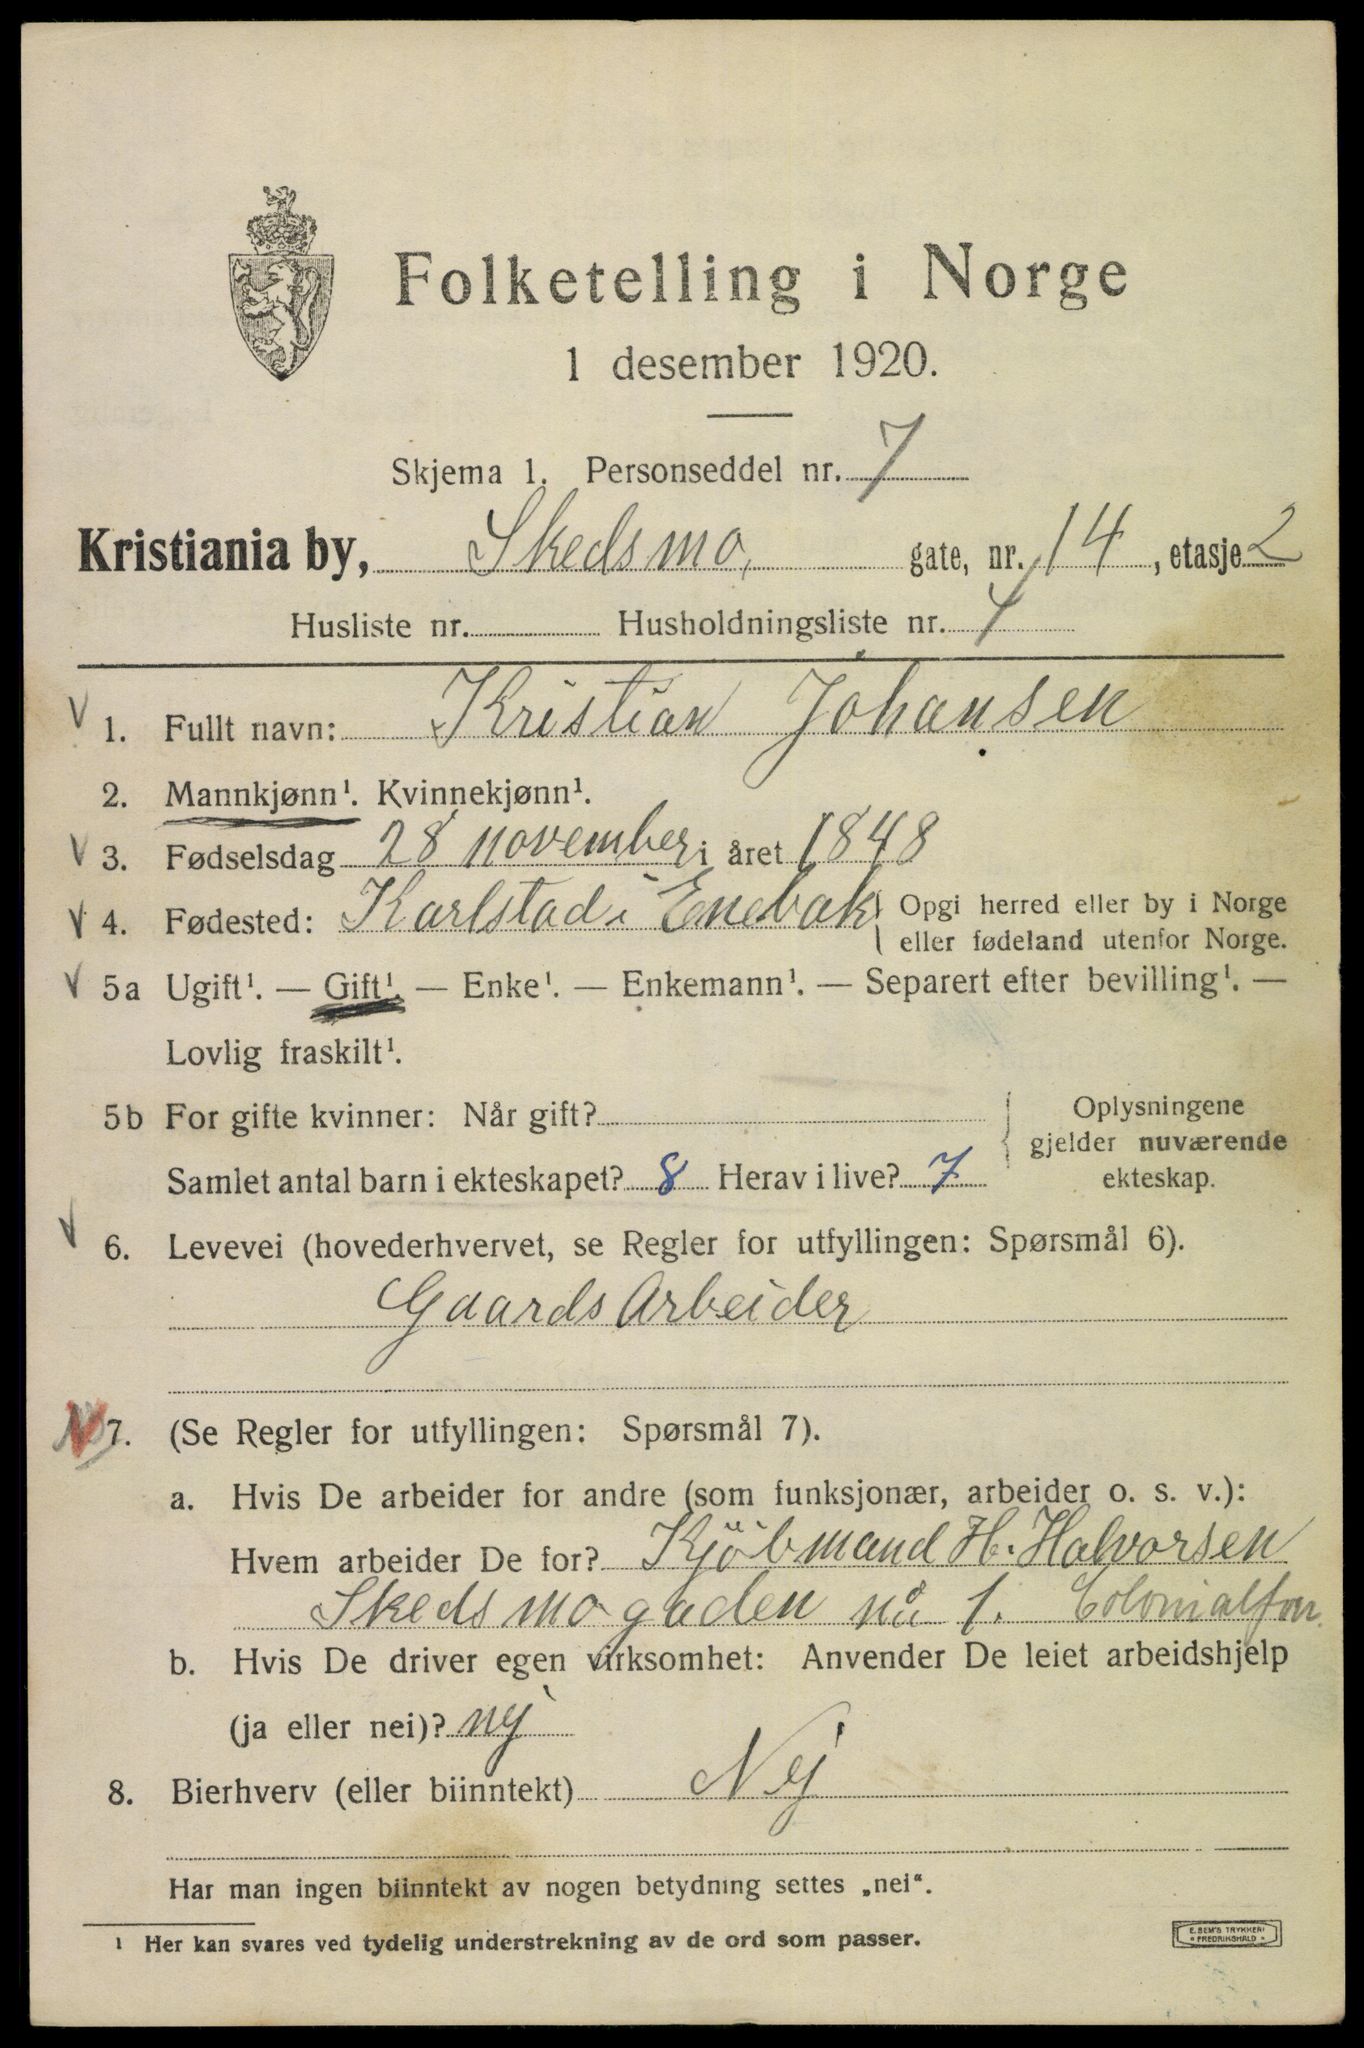 Folketelling i Norge
1 desember 1920.
Skjema 1. Personseddel nr. 7
Kristiania by, Skedsmo, gate, nr. 14, etasje 2
Husliste nr. Husholdningsliste nr.
1. Fullt navn: Kristian Johansen
2. Mannkjønn¹. Kvinnekjønn¹.
3. Fødselsdag 28 november i året 1848
4. Fødested: Karlstad i Enebak Opgi herred eller by i Norge
eller fødeland utenfor Norge.
5a Ugift¹. — Gift¹. — Enke¹. — Enkemann¹. — Separert efter bevilling¹. —
Lovlig fraskilt¹.
5b For gifte kvinner: Når gift?
Samlet antal barn i ekteskapet? 8 Herav i live? 7
Oplysningene
gjelder nuværende
ekteskap.
6. Levevei (hovederhvervet, se Regler for utfyllingen: Spørsmål 6).
Gaards Arbeider
7. (Se Regler for utfyllingen: Spørsmål 7).
a. Hvis De arbeider for andre (som funksjonær, arbeider o. s. v.):
Hvem arbeider De for? Kjöbmand H. Halvorsen
Skedsmogaden no 1. Colonialforr.
b. Hvis De driver egen virksomhet: Anvender De leiet arbeidshjelp
(ja eller nei)? nej
8. Bierhverv (eller biinntekt) Nej
Har man ingen biinntekt av nogen betydning settes „nei“.
¹ Her kan svares ved tydelig understrekning av de ord som passer.
E. SEM'S TRYKKERI
* FREDRIKSHALD *